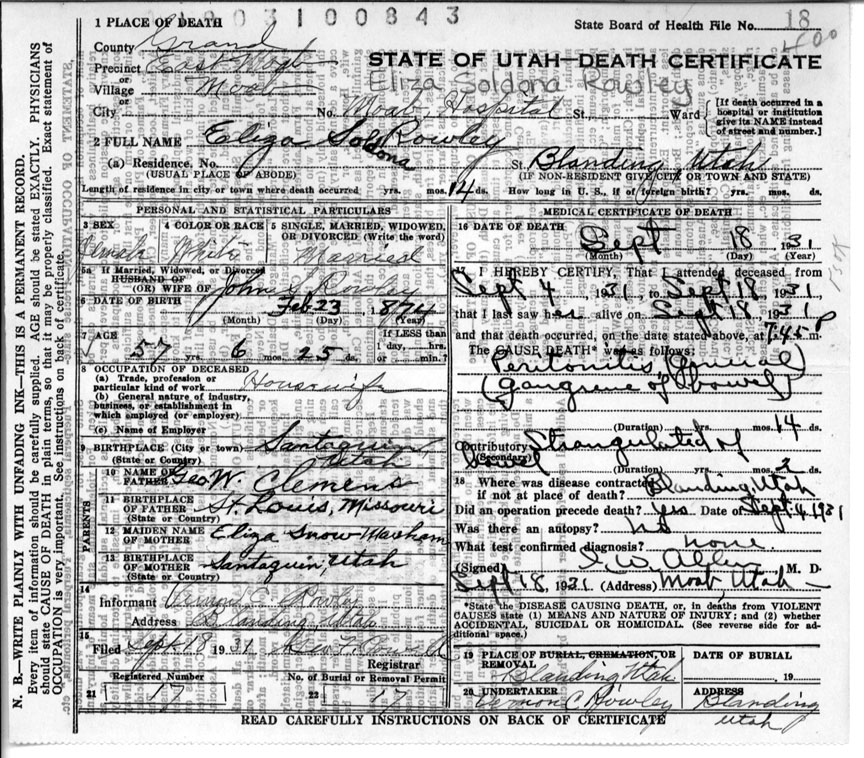 03100843
1 PLACE OF DEATH
State Board of Health File No. 18
400
County Grand
Precinct East Moab
or
Village Moab
or
City No. Moab, Hospital St., Ward
[If death occurred in a hospital or institution give its NAME instead of street and number.]
STATE OF UTAH—DEATH CERTIFICATE
Eliza Soldona Rowley
2 FULL NAME Eliza Soldona Rowley
(a) Residence. No. St. Blanding, Utah
(USUAL PLACE OF ABODE) (IF NON-RESIDENT GIVE CITY OR TOWN AND STATE)
Length of residence in city or town where death occurred yrs. mos. 14 ds. How long in U. S., if of foreign birth? yrs. mos. ds.
PERSONAL AND STATISTICAL PARTICULARS
3 SEX 4 COLOR OR RACE 5 SINGLE, MARRIED, WIDOWED, OR DIVORCED (Write the word)
Female White Married
5a If Married, Widowed, or Divorced
HUSBAND OF
(OR) WIFE OF John S. Rowley
6 DATE OF BIRTH Feb 23 1874
(Month) (Day) (Year)
7 AGE 57 yrs. 6 mos. 25 ds. If LESS than 1 day, hrs. or min.?
8 OCCUPATION OF DECEASED
(a) Trade, profession or particular kind of work Housewife
(b) General nature of industry, business, or establishment in which employed (or employer)
(c) Name of Employer
9 BIRTHPLACE (City or town) Santaquin,
(State or Country) Utah
PARENTS
10 NAME OF FATHER Geo. W. Clemens
11 BIRTHPLACE OF FATHER St. Louis, Missouri
(State or Country)
12 MAIDEN NAME OF MOTHER Eliza Snow
13 BIRTHPLACE OF MOTHER Santaquin, Utah
(State or Country)
14
Informant Rowley
Address Blanding, Utah
15
Filed Sept 18 1931
Registrar
Registered Number No. of Burial or Removal Permit
21 17 22 17
MEDICAL CERTIFICATE OF DEATH
16 DATE OF DEATH Sept 18 1931
(Month) (Day) (Year)
17 I HEREBY CERTIFY, That I attended deceased from
Sept 4, 1931, to Sept 18, 1931,
that I last saw her alive on Sept 18, 1931
and that death occurred, on the date stated above, at 7:45 P m.
The CAUSE OF DEATH* was as follows:
Peritonitis, General
(Gangrene of bowel)
(Duration) yrs. mos. 14 ds.
Contributory Strangulated of
(Secondary) bowel
(Duration) yrs. mos. 2 ds.
18 Where was disease contracted Blanding, Utah
if not at place of death?
Did an operation precede death? yes Date of Sept. 4, 1931
Was there an autopsy? no
What test confirmed diagnosis? none.
(Signed) I. W. Allen M. D.
Sept 18, 1931 (Address) Moab, Utah
*State the DISEASE CAUSING DEATH, or, in deaths from VIOLENT CAUSES state (1) MEANS AND NATURE OF INJURY; and (2) whether ACCIDENTAL, SUICIDAL OR HOMICIDAL. (See reverse side for additional space.)
19 PLACE OF BURIAL, CREMATION, OR REMOVAL DATE OF BURIAL
Blanding Utah , 19
20 UNDERTAKER ADDRESS
Vernon C Rowley Blanding
Utah
READ CAREFULLY INSTRUCTIONS ON BACK OF CERTIFICATE
N. B.—WRITE PLAINLY WITH UNFADING INK—THIS IS A PERMANENT RECORD.
Every item of information should be carefully supplied. AGE should be stated EXACTLY. PHYSICIANS
should state CAUSE OF DEATH in plain terms, so that it may be properly classified. Exact statement of
OCCUPATION is very important. See instructions on back of certificate.